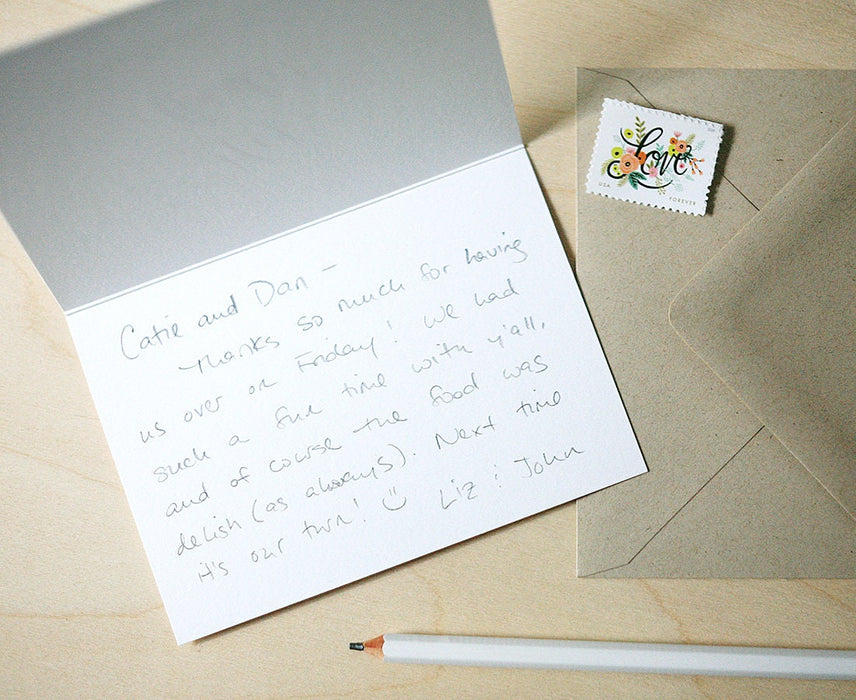 Catie and Dan –
Thanks so much for having
us over on Friday! We had
such a fun time with y'all,
and of course the food was
delish (as always). Next time
it's our turn! ☺ Liz & John
Love
USA
FOREVER